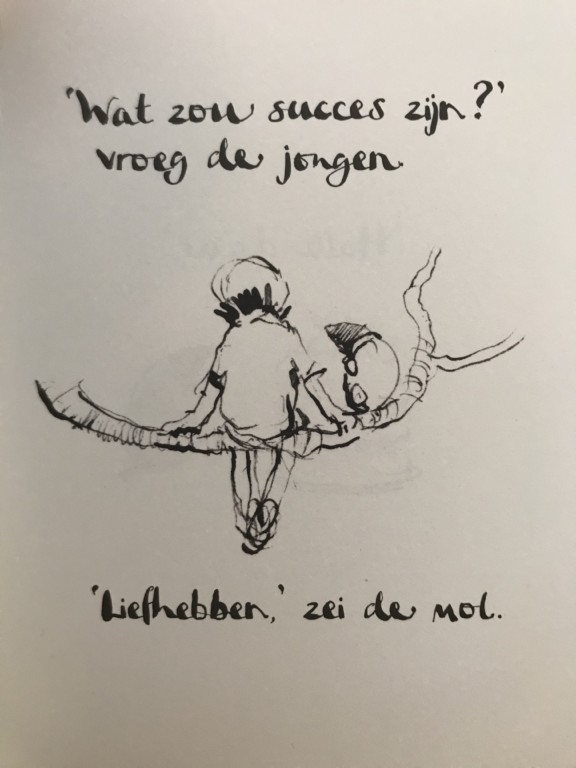 'Wat zou succes zijn?'
vroeg de jongen.
'Liefhebben,' zei de mol.